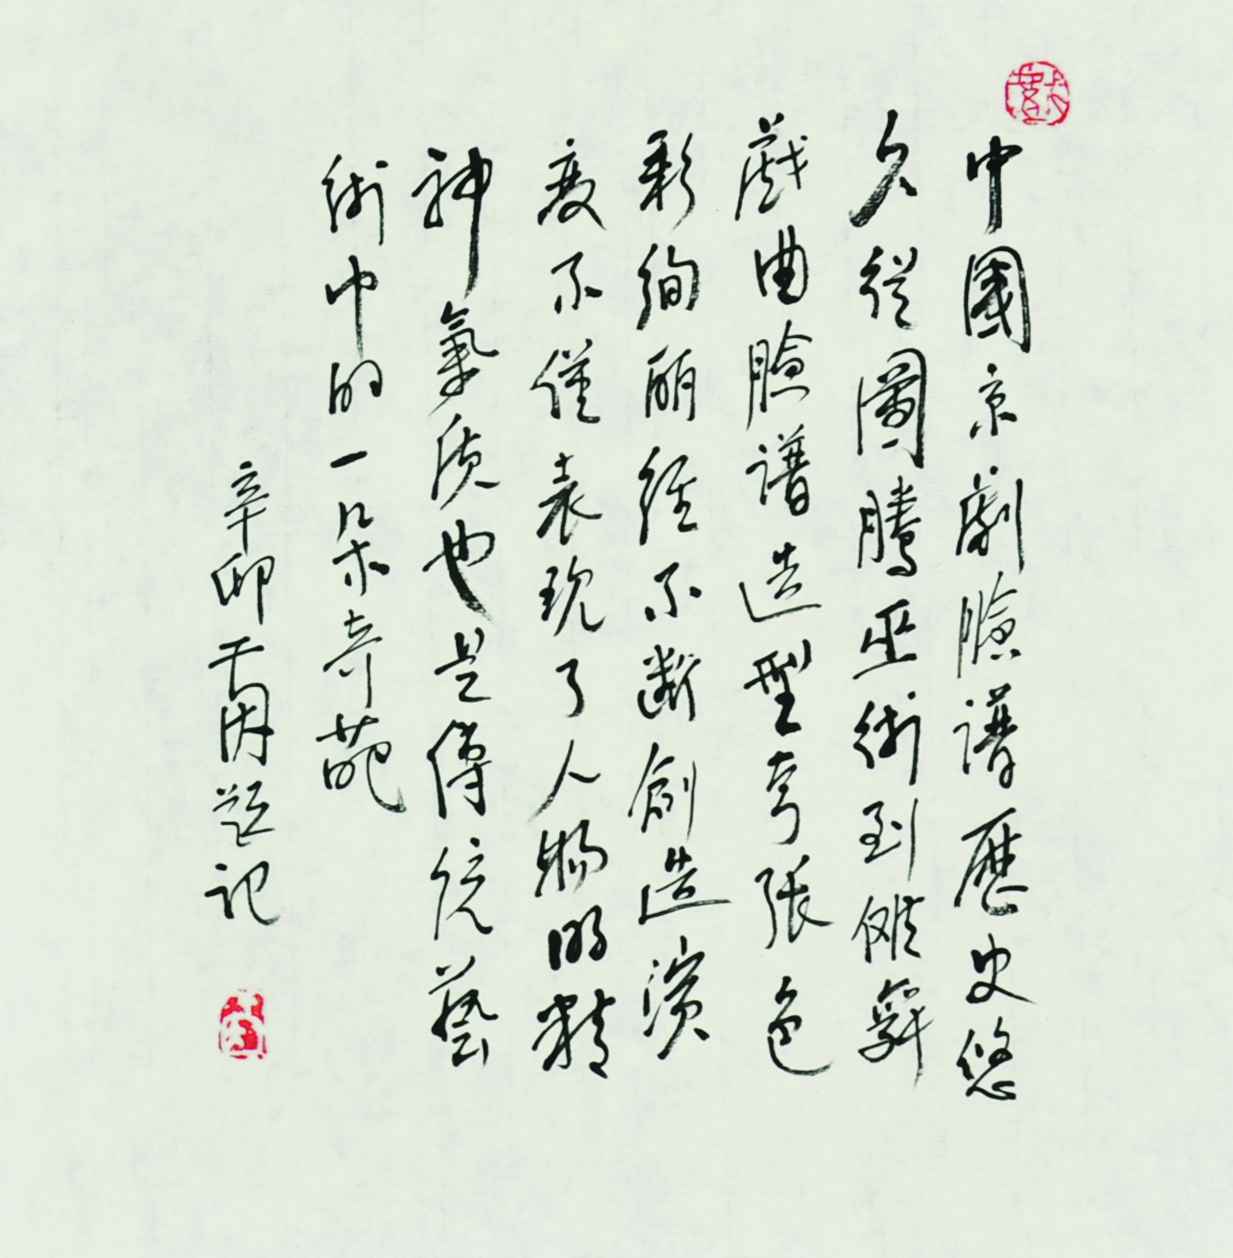 中國京劇臉譜歷史悠
久從圖騰巫術到傩舞
戲曲臉譜造型夸張色
彩絢丽經不断創造演
变不僅表現了人物的精
神氣质也是傳统藝
術中的一朵奇葩
辛卯 题记